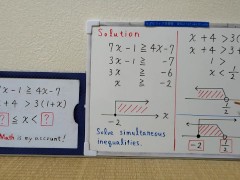 x - 1 ≧ 4x - 7
x + 4 > 3(1+x)
? ≦ x < ?
Math is my account!
Solution
7x - 1 ≧ 4x - 7
3x - 1 ≧ -7
3x ≧ -6
x ≧ -2
-2
x
Solve simultaneous
inequalities.
x + 4 > 3
x + 4 > 3
1 >
x < 1/2
-2